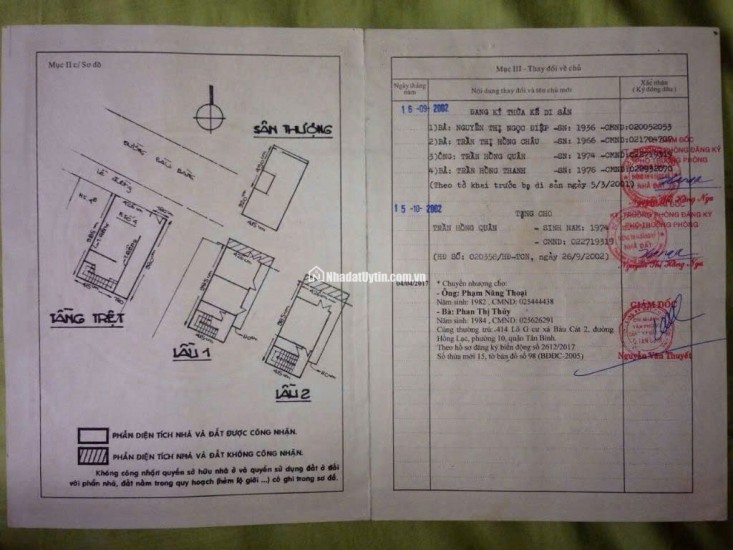 Mục II c/ Sơ đồ
SÂN THƯỢNG
TẦNG TRỆT
LẦU 1
LẦU 2
PHẦN DIỆN TÍCH NHÀ VÀ ĐẤT ĐƯỢC CÔNG NHẬN.
PHẦN DIỆN TÍCH NHÀ VÀ ĐẤT KHÔNG CÔNG NHẬN.
Không công nhận quyền sở hữu nhà ở và quyền sử dụng đất ở đối
với phần nhà, đất nằm trong quy hoạch (hẻm lộ giới ...) có ghi trong sơ đồ.
Mục III - Thay đổi về chủ
Ngày tháng
năm
Nội dung thay đổi và tên chủ mới
Xác nhận
(Ký đóng dấu)
16 -09- 2002
ĐANG KÝ THỪA KẾ DI SẢN
1)BÀ: NGUYỄN THỊ NGỌC HIỆP -SN: 1936 -CMND:020052053
2)BÀ: TRẦN THỊ HỒNG CHÂU -SN: 1966 -CMND:
3)ÔNG: TRẦN HỒNG QUÂN -SN: 1974 -CMND:
4)BÀ: TRẦN HỒNG THANH -SN: 1976 -CMND:
(Theo tờ khai trước bạ di sản ngày 5/3/2001)
PHÓ TRƯỞNG PHÒNG
15 -10- 2002
TẶNG CHO
TRẦN HỒNG QUÂN - SINH NAM: 1974
- CMND: 022719313
(HĐ SỐ: 020356/HĐ-TCN, ngày 26/9/2002)
TRƯỞNG PHÒNG ĐĂNG KÝ
PHÓ TRƯỞNG PHÒNG
Nguyễn Thị Hồng Nga
04/04/2017
* Chuyển nhượng cho:
- Ông: Phạm Năng Thoại
Năm sinh: 1982 , CMND: 025444438
- Bà: Phan Thị Thủy
Năm sinh: 1984 , CMND: 025626291
Cùng thường trú: 414 Lô G cư xá Bàu Cát 2, đường
Hồng Lạc, phường 10, quận Tân Bình.
Theo hồ sơ đăng ký biến động số 2612/2017
Số thửa mới 15, tờ bản đồ số 98 (BĐĐC-2005)
GIÁM ĐỐC
Nguyễn Văn Thuyết
NhadatUytin.com.vn